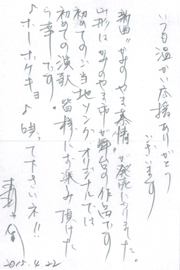 いつも温かい応援ありがとう
ございます
新曲"かみのやま慕情"が発売になりました。
山形は"かみのやま市"が舞台の作品です
初めてのご当地ソング オリジナルでは
初めての演歌 皆様にお楽しみ頂けた
ら幸です。
♪ホーホケキョ♪ 唄って下さいネ!!
2015.4.22